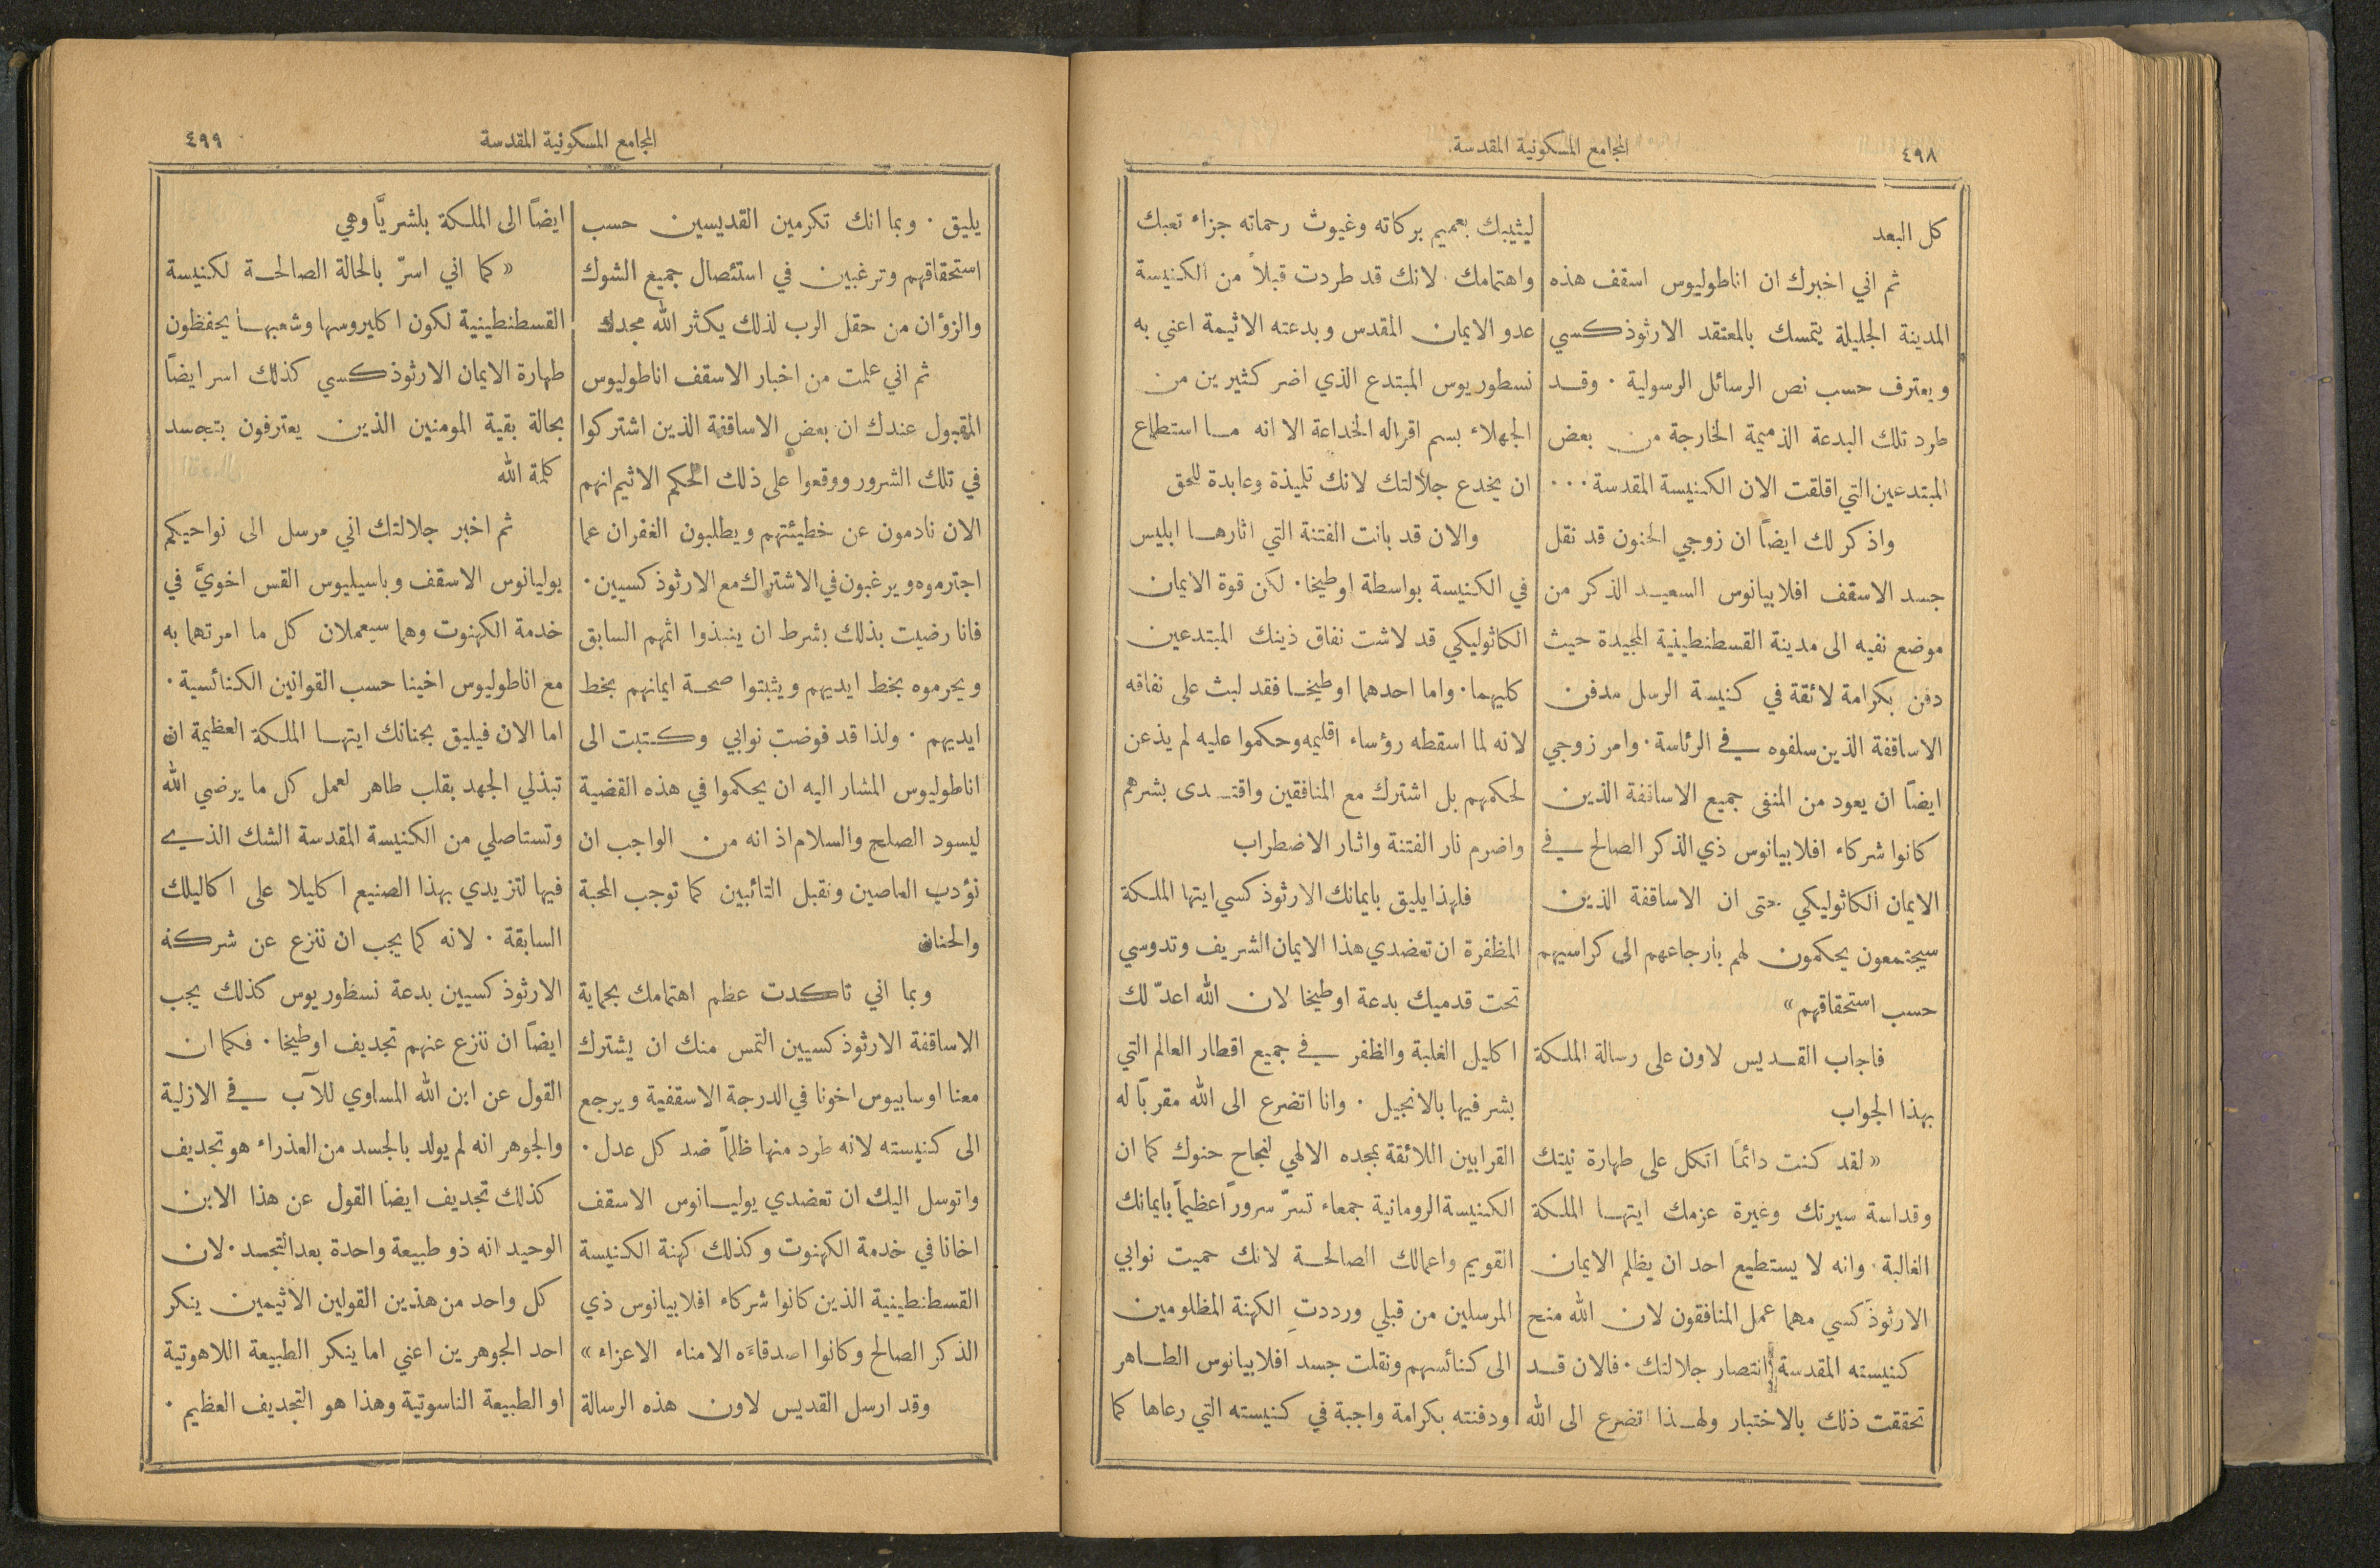 ٤٩٨
المجامع المسكونية المقدسة
كل البعد
ثم اني اخبرك ان اناطوليوس اسقف هذه
المدينة الجليلة يتمسك بالمعتقد الارثوذكسي
ويعترف حسب نص الرسائل الرسولية . وقد
طرد تلك البدعة الذميمة الخارجة من بعض
المبتدعين التي اقلقت الان الكنيسة المقدسة ...
واذكر لك ايضاً ان زوجي الحنون قد نقل
جسد الاسقف افلابيانوس السعيد الذكر من
موضع نفيه الى مدينة القسطنطينية المجيدة حيث
دفن بكرامة لائقة في كنيسة الرسل مدفن
الاساقفة الذين سلفوه في الرئاسة . وامر زوجي
ايضاً ان يعود من المنفى جميع الاساقفة الذين
كانوا شركاء افلابيانوس ذي الذكر الصالح في
الايمان الكاثوليكي حتى ان الاساقفة الذين
سيجتمعون يحكمون لهم بارجاعهم الى كراسيهم
حسب استحقاقهم »
فاجاب القديس لاون على رسالة الملكة
بهذا الجواب
« لقد كنت دائماً اتكل على طهارة نيتك
وقداسة سيرتك وغيرة عزمك ايتها الملكة
الغالبة . وانه لا يستطيع احد ان يظلم الايمان
الارثوذكسي مهما عمل المنافقون لان الله منح
كنيسته المقدسة انتصار جلالتك . فالان قد
تحققت ذلك بالاختبار ولهذا اتضرع الى الله
ليثيبك بعميم بركاته وغيوث رحماته جزاء تعبك
واهتمامك . لانك قد طردت قبلاً من الكنيسة
عدو الايمان المقدس وبدعته الاثيمة اعني به
نسطوريوس المبتدع الذي اضر كثيرين من
الجهلاء بسم اقواله الخداعة الا انه ما استطاع
ان يخدع جلالتك لانك تلميذة وعابدة للحق
والان قد بانت الفتنة التي اثارها ابليس
في الكنيسة بواسطة اوطيخا . لكن قوة الايمان
الكاثوليكي قد لاشت نفاق ذينك المبتدعين
كليهما . واما احدهما اوطيخا فقد لبث على نفاقه
لانه لما اسقطه رؤساء اقليمه وحكموا عليه لم يذعن
لحكمهم بل اشترك مع المنافقين واقتدى بشرهم
واضرم نار الفتنة واثار الاضطراب
فلهذا يليق بايمانك الارثوذكسي ايتها الملكة
المظفرة ان تعضدي هذا الايمان الشريف وتدوسي
تحت قدميك بدعة اوطيخا لان الله اعدّ لك
اكليل الغلبة والظفر في جميع اقطار العالم التي
بشر فيها بالانجيل . وانا اتضرع الى الله مقرباً له
القرابين اللائقة بمجده الالهي لنجاح حنوك كما ان
الكنيسة الرومانية جمعاء تسرّ سروراً عظيماً بايمانك
القويم واعمالك الصالحة لانك حميت نوابي
المرسلين من قبلي ورددتِ الكهنة المظلومين
الى كنائسهم ونقلت جسد افلابيانوس الطاهر
ودفنته بكرامة واجبة في كنيسته التي رعاها كما
المجامع المسكونية المقدسة
٤٩٩
يليق . وبما انك تكرمين القديسين حسب
استحقاقهم وترغبين في استئصال جميع الشوك
والزؤان من حقل الرب لذلك يكثر الله مجدك
ثم اني علمت من اخبار الاسقف اناطوليوس
المقبول عندك ان بعض الاساقفة الذين اشتركوا
في تلك الشرور ووقعوا على ذلك الحكم الاثيم انهم
الان نادمون عن خطيئتهم ويطلبون الغفران عما
اجترموه ويرغبون في الاشتراك مع الارثوذكسيين .
فانا رضيت بذلك بشرط ان ينبذوا اثمهم السابق
ويحرموه بخط ايديهم ويثبتوا صحة ايمانهم بخط
ايديهم . ولذا قد فوضت نوابي وكتبت الى
اناطوليوس المشار اليه ان يحكموا في هذه القضية
ليسود الصلح والسلام اذ انه من الواجب ان
نؤدب العاصين ونقبل التائبين كما توجب المحبة
والحنان
وبما اني تاكدت عظم اهتمامك بحماية
الاساقفة الارثوذكسيين التمس منك ان يشترك
معنا اوسابيوس اخونا في الدرجة الاسقفية ويرجع
الى كنيسته لانه طرد منها ظلماً ضد كل عدل .
واتوسل اليك ان تعضدي يوليانوس الاسقف
اخانا في خدمة الكهنوت وكذلك كهنة الكنيسة
القسطنطينية الذين كانوا شركاء افلابيانوس ذي
الذكر الصالح وكانوا اصدقاءه الامناء الاعزاء »
وقد ارسل القديس لاون هذه الرسالة
ايضاً الى الملكة بلشريَّا وهي
« كما اني اسرّ بالحالة الصالحة لكنيسة
القسطنطينية لكون اكليروسها وشعبها يحفظون
طهارة الايمان الارثوذكسي كذلك اسر ايضاً
بحالة بقية المومنين الذين يعترفون بتجسد
كلمة الله
ثم اخبر جلالتك اني مرسل الى نواحيكم
يوليانوس الاسقف وباسيليوس القس اخويَّ في
خدمة الكهنوت وهما سيعملان كل ما امرتهما به
مع اناطوليوس اخينا حسب القوانين الكنائسية .
اما الان فيليق بجنابك ايتها الملكة العظيمة ان
تبذلي الجهد بقلب طاهر لعمل كل ما يرضي الله
وتستاصلي من الكنيسة المقدسة الشك الذي
فيها لتزيدي بهذا الصنيع اكليلا على اكاليلك
السابقة . لانه كما يجب ان ننزع عن شركة
الارثوذكسيين بدعة نسطوريوس كذلك يجب
ايضاً ان ننزع عنهم تجديف اوطيخا . فكما ان
القول عن ابن الله المساوي للآب في الازلية
والجوهر انه لم يولد بالجسد من العذراء هو تجديف
كذلك تجديف ايضا القول عن هذا الابن
الوحيد انه ذو طبيعة واحدة بعد التجسد . لان
كل واحد من هذين القولين الاثيمين ينكر
احد الجوهرين اعني اما ينكر الطبيعة اللاهوتية
او الطبيعة الناسوتية وهذا هو التجديف العظيم .